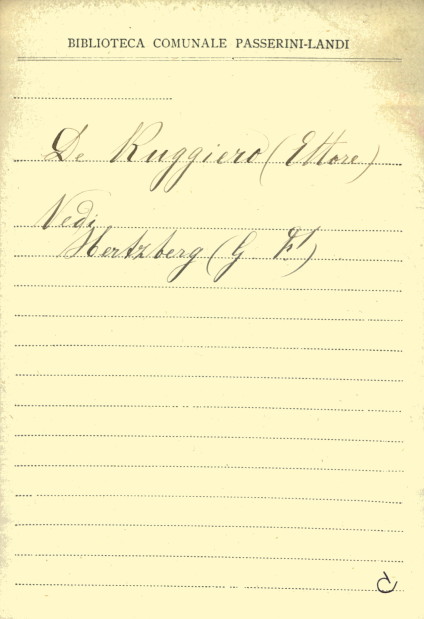 BIBLIOTECA COMUNALE PASSERINI-LANDI
De Ruggiero (Ettore)
Vedi
Hertzberg (G F)